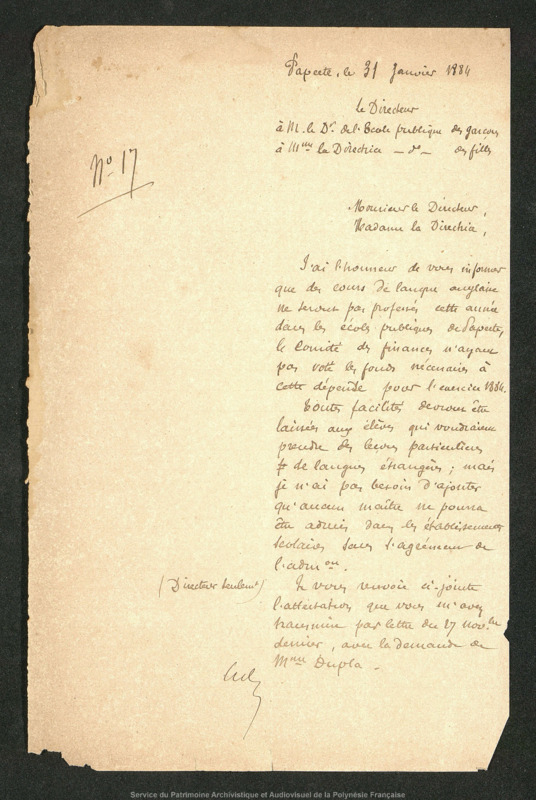 Papeete, le 31 Janvier 1884
Le Directeur
à M. le Dr de l'Ecole publique des garçons
à Mme la Directrice — do — des filles
No 17
Monsieur le Directeur,
Madame la Directrice,
J'ai l'honneur de vous informer
que des cours de langue anglaise
ne seront pas professés cette année
dans les écoles publiques de Papeete,
le Comité des finances n'ayant
pas voté les fonds nécessaires à
cette dépense pour l'exercice 1884.
Toutes facilités devront être
laissées aux élèves qui voudraient
prendre des leçons particulières
de langues étrangères ; mais
je n'ai pas besoin d'ajouter
qu'aucun maître ne pourra
être admis dans les établissements
scolaires sans l'agrément de
l'admon.
(Directeur seulemt) Je vous renvoie ci-jointe
l'attestation que vous m'avez
transmise par lettre du 27 novbre
dernier, avec la demande de
Mme Dupla —
Service du Patrimoine Archivistique et Audiovisuel de la Polynésie Française